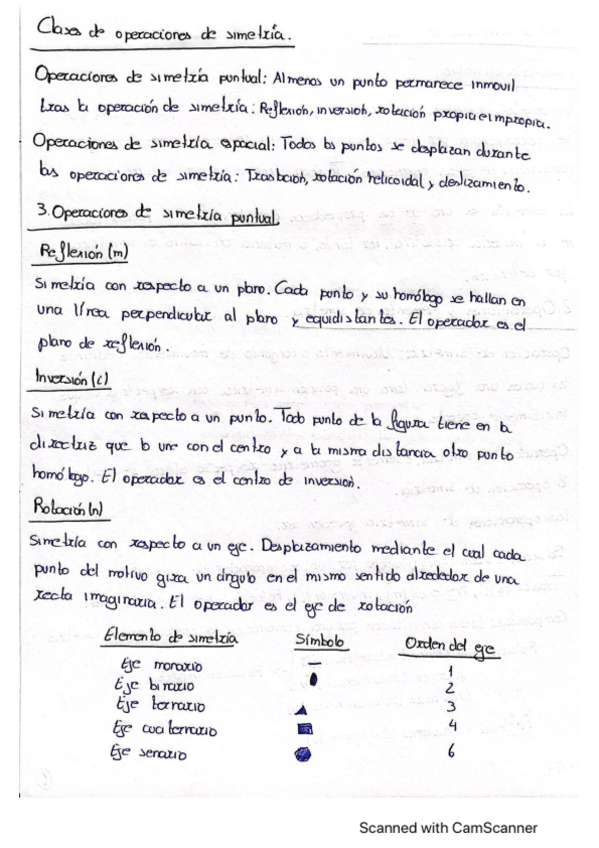 Clases de operaciones de simetría.
Operaciones de simetría puntual: Al menos un punto permanece inmovil
tras la operación de simetría: Reflexión, inversión, rotación propia e impropia.
Operaciones de simetría espacial: Todos los puntos se desplazan durante
las operaciones de simetría: Traslación, rotación helicoidal y deslizamiento.
3. Operaciones de simetría puntual
Reflexión (m)
Simetría con respecto a un plano. Cada punto y su homólogo se hallan en
una línea perpendicular al plano y equidistantes. El operador es el
plano de reflexión.
Inversión (c)
Simetría con respecto a un punto. Todo punto de la figura tiene en la
directriz que lo une con el centro y a la misma distancia otro punto
homólogo. El operador es el centro de inversión.
Rotación (n)
Simetría con respecto a un eje. Desplazamiento mediante el cual cada
punto del motivo gira un ángulo en el mismo sentido alrededor de una
recta imaginaria. El operador es el eje de rotación
Elemento de simetría Símbolo Orden del eje
Eje monario 1
Eje binario 2
Eje ternario 3
Eje cuaternario 4
Eje senario 6
Scanned with CamScanner